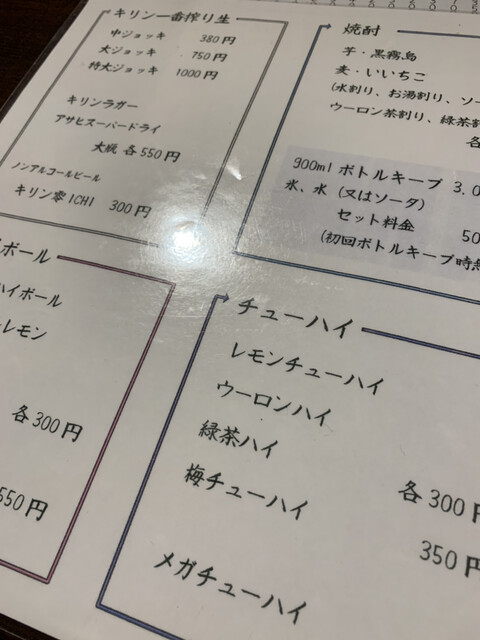 キリン一番搾り生
中ジョッキ 380円
大ジョッキ 750円
特大ジョッキ 1000円
キリンラガー
アサヒスーパードライ
大瓶 各550円
ノンアルコールビール
キリン零ICHI 300円
焼酎
芋・黒霧島
麦・いいちこ
(水割り、お湯割り、ソー
ウーロン茶割り、緑茶割
各
900ml ボトルキープ 3.0
氷、水 (又はソーダ)
セット料金 50
(初回ボトルキープ時無
ボール
ハイボール
レモン
各300円
550円
チューハイ
レモンチューハイ
ウーロンハイ
緑茶ハイ
各300円
梅チューハイ 350円
メガチューハイ